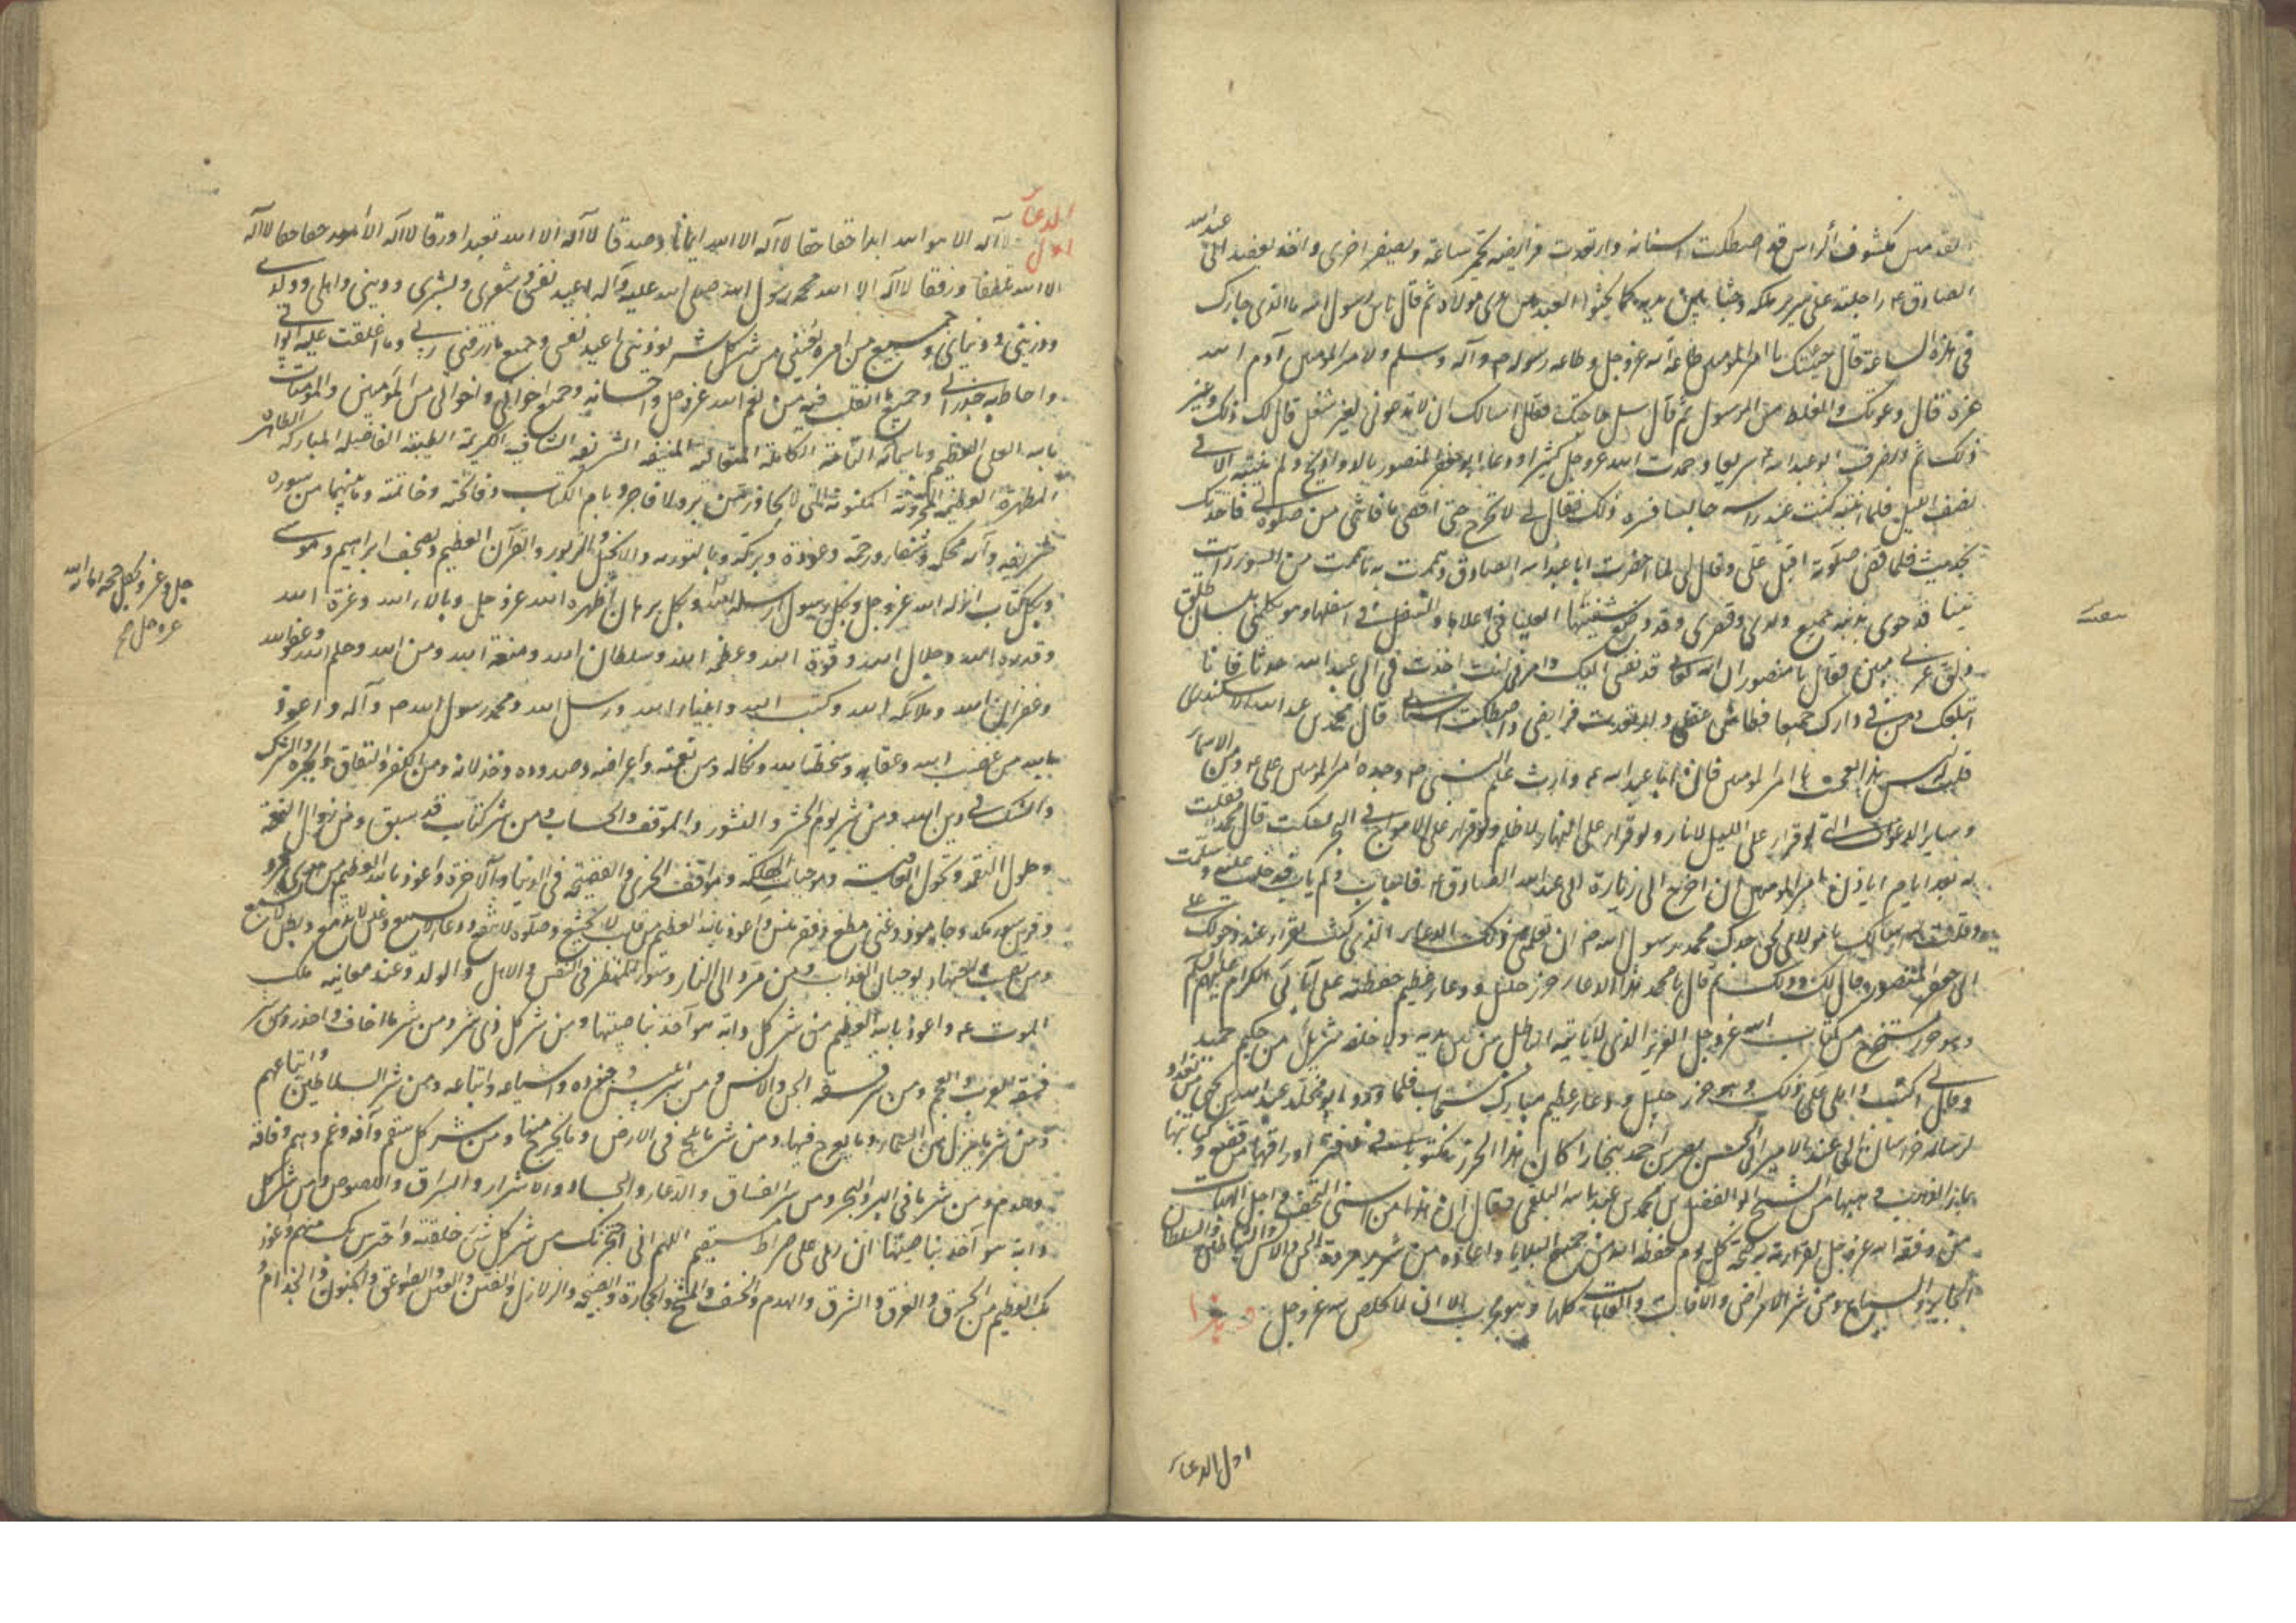 القدمين مكشوف الراس قد اصطكت اسنانه وارتعدت فرايصه يحمر ساعة ويصفر اخرى واخذ بعضد ابى عبد الله
الصادق ع واجلسه على سرير ملكه وجثا بين يديه كما يجثو العبد بين يدى مولاه ثم قال يا بن رسول الله ما الذى جاء بك
فى هذه الساعة قال جئتك يا امير المومنين طاعة لله عز وجل وطاعه رسوله ص وآله وسلم ولامر المومنين آدم الله
عزه قال دعوتك والغلط من الرسول ثم قال سل حاجتك فقال اسالك ان لا تدعونى لغير شغل قال لك ذلك وغير
ذلك ثم انصرف ابو عبد الله ع سريعا وحمدت الله عز وجل كثيرا ودعا ابو جعفر المنصور بالدواويج ولم ينتبه الا فى
نصف الليل فلما انتبه كنت عند راسه جالسا فسره ذلك فقال لى لا تخرج حتى اقضى ما فاتنى من صلوتى فاحدثك
بحديث فلما قضى صلوته اقبل على وقال لى لما احضرت ابا عبد الله الصادق وهممت به ما هممت من السوء رايت
تنينا قد حوى بذنبه جميع دارى وقصرى وقد وضع شفتيها العليا فى اعلاها والسفلى فى اسفلها وهو يكلمنى بلسان طلق
ذلق عربى مبين فقال يا منصور ان الله تعالى قد بعثنى اليك وامرنى ان انت احدثت فى ابى عبد الله حدثا فانا
ابتلعك ومن فى دارك جميعا فطاش عقلى وارتعدت فرايصى واصطكت اسنانى قال محمد بن عبد الله الاسكندرى
قلت ليس هذا بعجيب يا امير المومنين فان ابا عبد الله ع وارث علم النبى ص وجده امير المومنين على ع وعنده من الاسماء
وساير الدعوات التى لو قراها على الليل لانار ولو قراها على النهار لاظلم ولو قراها على الامواج فى البحر لسكنت قال محمد فقلت
له بعد ايام اتاذن لى يا امير المومنين ان اخرج الى زيارة ابى عبد الله الصادق ع فاجاب ولم ياب فدخلت عليه وسلمت
وقلت له اسالك يا مولاى بحق جدك محمد رسول الله ص ان تعلمنى ذلك الدعاء الذى كنت تقراه عند دخولك على
ابى جعفر المنصور قال لك ذلك ثم قال يا محمد هذا الدعاء حرز جليل ودعاء عظيم حفظته على آبائى الكرام عليهم السلام
وهو حرز مستخرج من كتاب الله عز وجل العزيز الذى لا ياتيه الباطل من بين يديه ولا من خلفه تنزيل من حكيم حميد
وقال لى اكتب واملى على ذلك وهو حرز جليل ودعاء عظيم مبارك مستجاب فلما ورد ابو مخلد عبد الله بن يحيى من بغداد
لرسالة خراسان الى عند الامير ابى الحسن نصر بن احمد ببخارا كان هذا الحرز مكتوبا فى دفتر اوراقها من فضة وكتابتها
بماء الذهب وهبها من الشيخ ابو الفضل بن محمد بن عبد الله البلعمى فقال ان هذا من اسنى التحف واجل الهبات
من وفقه الله عز وجل لقراءته صبيحة كل يوم حفظه الله من جميع البلايا واعاذه من شر مردة الجن والانس والشياطين والسلطان
الجابر والسباع ومن شر الامراض والآفات والعاهات كلها وهو مجرب الا ان لا يخلص لله عز وجل
اول الدعاء
الدعاء
اول
لا آله الا هو الله ابدا حقا حقا لا آله الا الله ايمانا وصدقا لا آله الا الله تعبدا ورقا لا آله الا الله حقا حقا لا آله
الا الله تلطفا ورفقا لا آله الا الله محمد رسول الله صلى الله عليه وآله اعيذ نفسى وشعرى وبشرى ودينى واهلى وولدى
وذريتى ودنياى وجميع من امره يعنينى من شر كل شى يوذينى اعيذ نفسى وجميع ما رزقنى ربى وما اغلقت عليه ابوابى
واحاطت به جدرانى وجميع ما اتقلب فيه من نعم الله عز وجل واحسانه وجميع اخوانى واخواتى من المومنين والمومنات
بالله العلى العظيم وباسمائه التامة الكاملة المتعالية المنيفة الشريفة الشافية الكريمة الطيبة الفاضلة المباركة الطاهرة
المطهرة العظيمة المخزونة المكنونة التى لا يجاوزهن بر ولا فاجر وبام الكتاب وفاتحته وخاتمته وما بينهما من سورة
شريفة وآية محكمة وشفاء ورحمة وعوذة وبركة وبالتورية والانجيل والزبور والقرآن العظيم وبصحف ابراهيم وموسى
وبكل كتاب انزله الله عز وجل وبكل رسول ارسله الله وبكل برهان اظهره الله عز وجل وبآلاء الله وعزة الله
وقدرة الله وجلال الله وقوة الله وعظمة الله وسلطان الله ومنعة الله ومن الله وحلم الله وعفو الله
وغفران الله وملائكة الله وكتب الله وانبياء الله ورسل الله ومحمد رسول الله ص وآله واعوذ
بالله من غضب الله وعقابه وسخط الله ونكاله ومن نقمته واعراضه وصدوده وخذلانه ومن الكفر والنفاق والحيرة والشرك
والشك فى دين الله ومن شر يوم الحشر والنشور والموقف والحساب ومن شر كتاب قد سبق ومن زوال النعمة
وحلول النقمة وتحول العافية وموجبات الهلكة ومواقف الخزى والفضيحة فى الدنيا والآخرة واعوذ بالله العظيم من هوى مرد
وقرين سوء مكد وجار موذ وغنى مطغ وفقر منس واعوذ بالله العظيم من قلب لا يخشع وصلوة لا تنفع ودعاء لا يسمع وعين لا تدمع وبطن لا يشبع
ومن نصب واجتهاد يوجبان العذاب ومن مرد الى النار وسوء المنظر فى النفس والاهل والمال والولد وعند معاينة ملك
الموت ع واعوذ بالله العظيم من شر كل دابة هو آخذ بناصيتها ومن شر كل ذى شر ومن شر ما اخاف واحذر ومن شر
فسقة العرب والعجم ومن شر فسقة الجن والانس ومن شر ابليس وجنوده واشياعه واتباعه ومن شر السلاطين واتباعهم
ومن شر ما ينزل من السماء وما يعرج فيها ومن شر ما يلج فى الارض وما يخرج منها ومن شر كل سقم وآفة وغم وهم وفاقة
وعدم ومن شر ما فى البر والبحر ومن شر الفساق والدعار والحساد والاشرار والسراق واللصوص ومن شر كل
دابة هو آخذ بناصيتها ان ربى على صراط مستقيم اللهم انى احتجز بك من شر كل شى خلقته واحترس بك منهم واعوذ
بك العظيم من الحرق والغرق والشرق والهدم والخسف والمسخ والحجارة والصيحة والزلازل والفتن والعين والصواعق والجنون والجذام